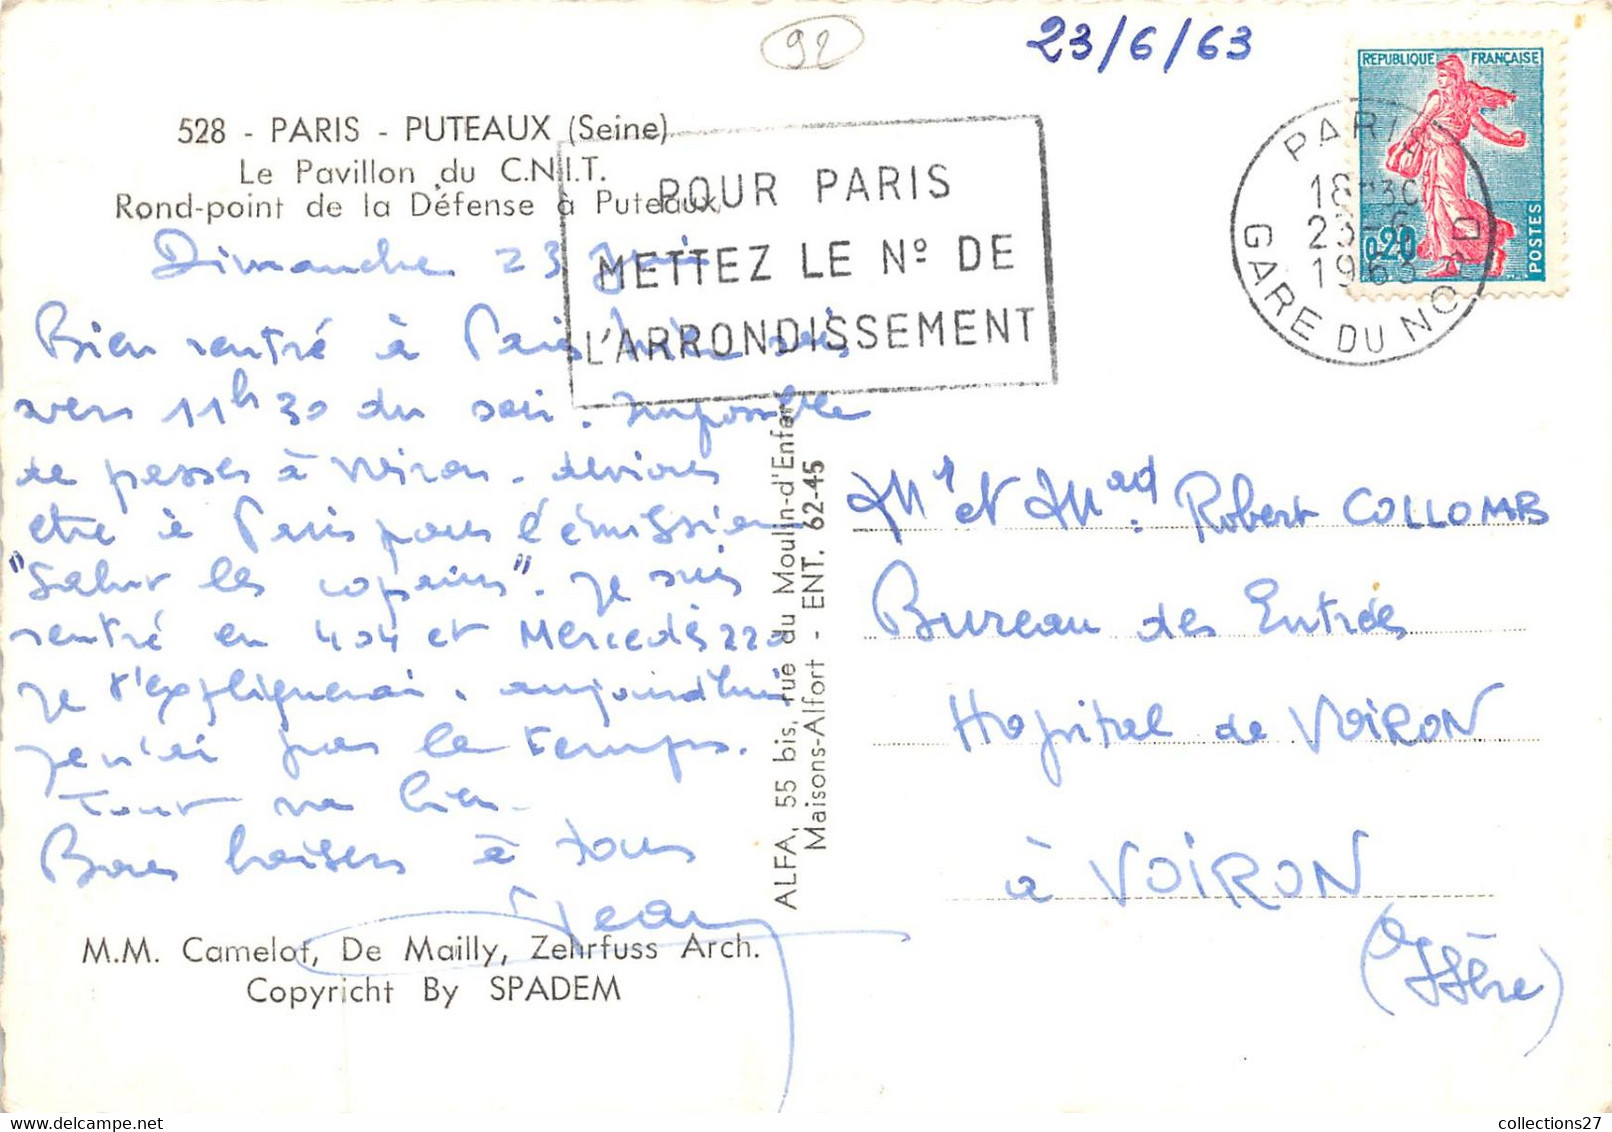 92
23/6/63
REPUBLIQUE FRANÇAISE
0,20
POSTES
PARIS
18H30
23-6
1963
GARE DU NORD
528 - PARIS - PUTEAUX (Seine)
Le Pavillon du C.N.I.T.
Rond-point de la Défense à Puteaux
POUR PARIS
METTEZ LE No DE
L'ARRONDISSEMENT
Dimanche 23 juin
Bien rentré à Paris hier soir
vers 11h30 du soir. Impossible
de passer à Voiron. devions
etre à Paris pour l'émission
"Salut les copains". Je suis
rentré en 404 et Mercedès 220
Je t'expliquerai. aujourd'hui
je n'ai pas le temps.
Tout va bien.
Bons baisers à tous
Jean
M.M. Camelot, De Mailly, Zehrfuss Arch.
Copyricht By SPADEM
ALFA, 55 bis, rue du Moulin-d'Enfer
Maisons-Alfort - ENT. 62-45
Mr et Mad. Robert COLLOMB
Bureau des Entrées
Hopital de VOIRON
à VOIRON
(Isère)
collections27